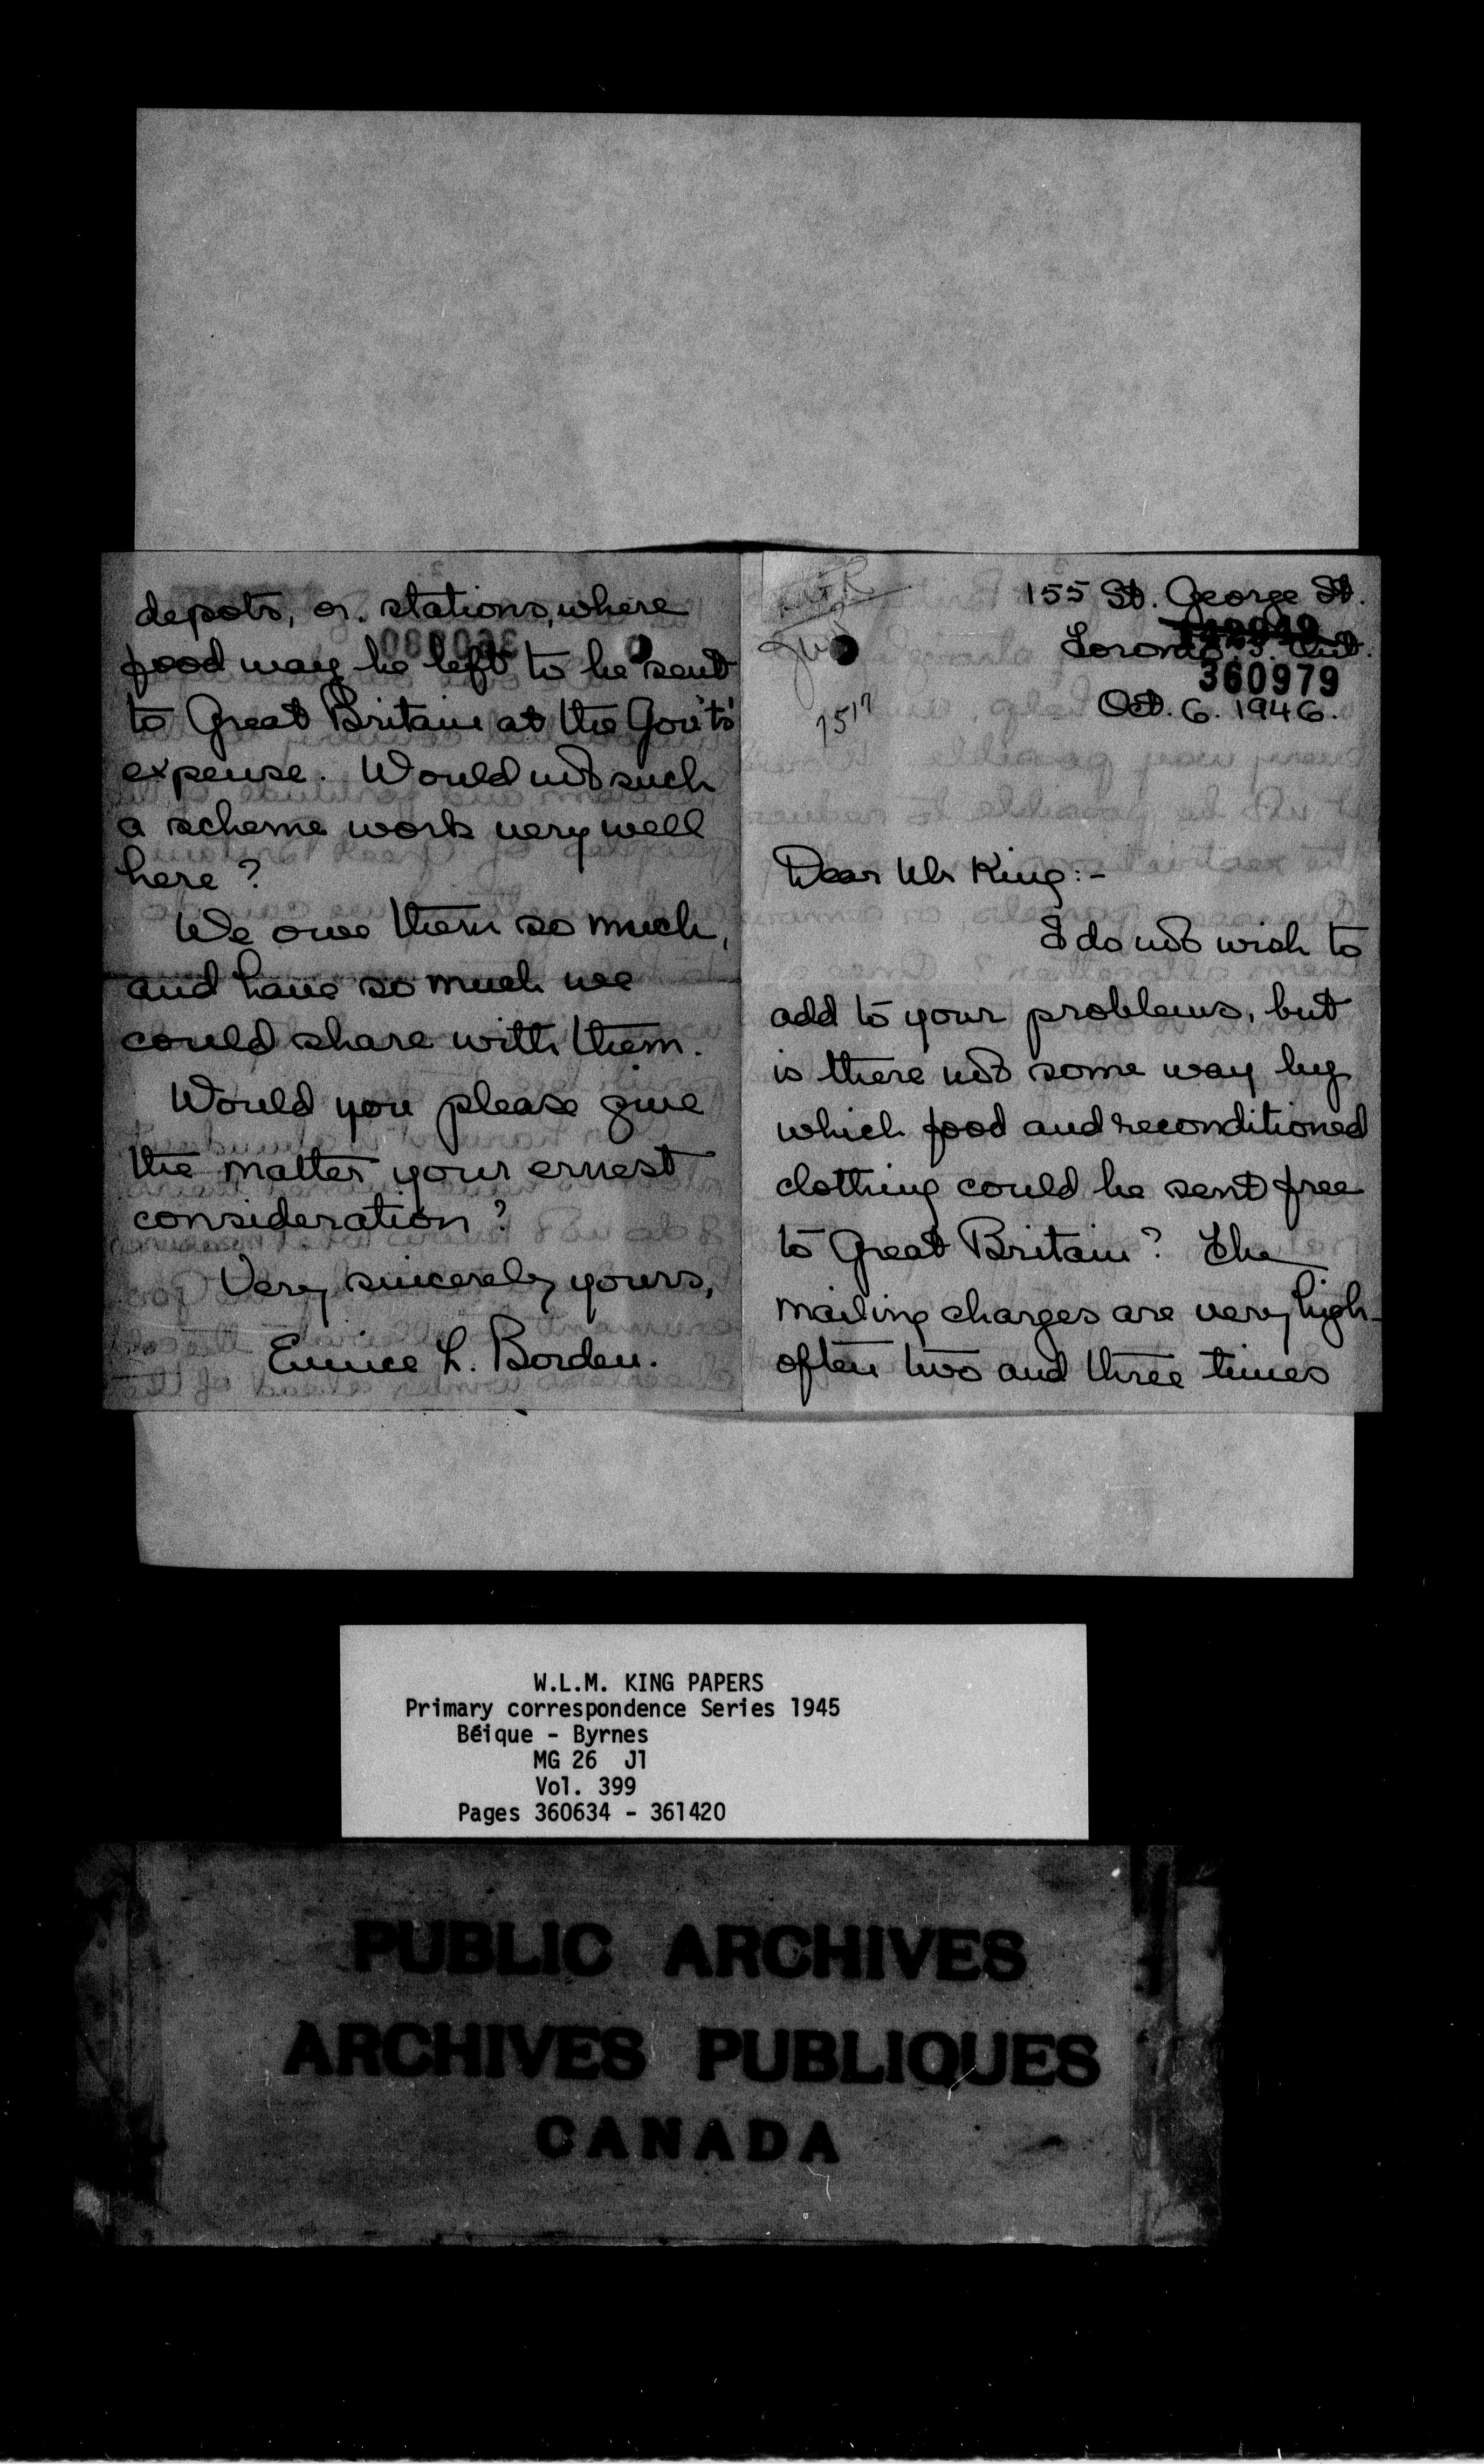 155 St. George St.
Toronto 5. Ont.
360979
Oct. 6. 1946.
7517
Dear Mr King:-
I do not wish to
add to your problems, but
is there not some way by
which food and reconditioned
clothing could be sent free
to Great Britain? The
mailing charges are very high -
often two and three times
depots, or stations, where
food may be left to be sent
to Great Britain at the Gov'ts'
expense. Would not such
a scheme work very well
here?
We owe them so much,
and have so much we
could share with them.
Would you please give
the matter your ernest
consideration?
Very sincerely yours,
Eunice L. Borden.
W.L.M. KING PAPERS
Primary correspondence Series 1945
Béique - Byrnes
MG 26 J1
Vol. 399
Pages 360634 - 361420
PUBLIC ARCHIVES
ARCHIVES PUBLIQUES
CANADA